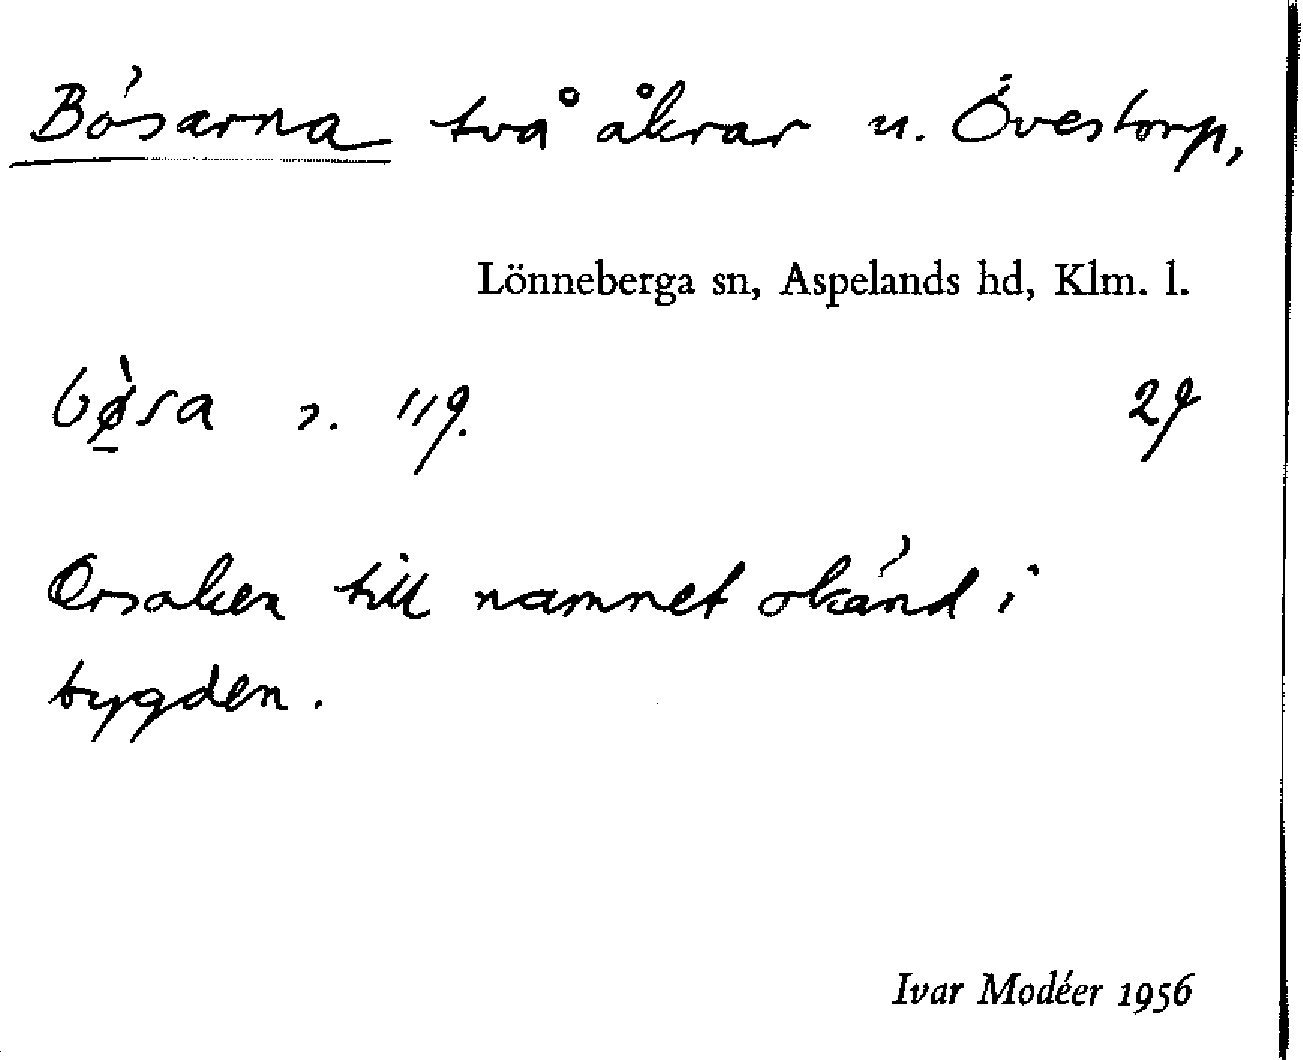 Bösarna två åkrar u. Övestorp,
Lönneberga sn, Aspelands hd, Klm. l.
bø̠̀sa 119. 29
Orsaken till namnet okänd i
bygden.
Ivar Modéer 1956